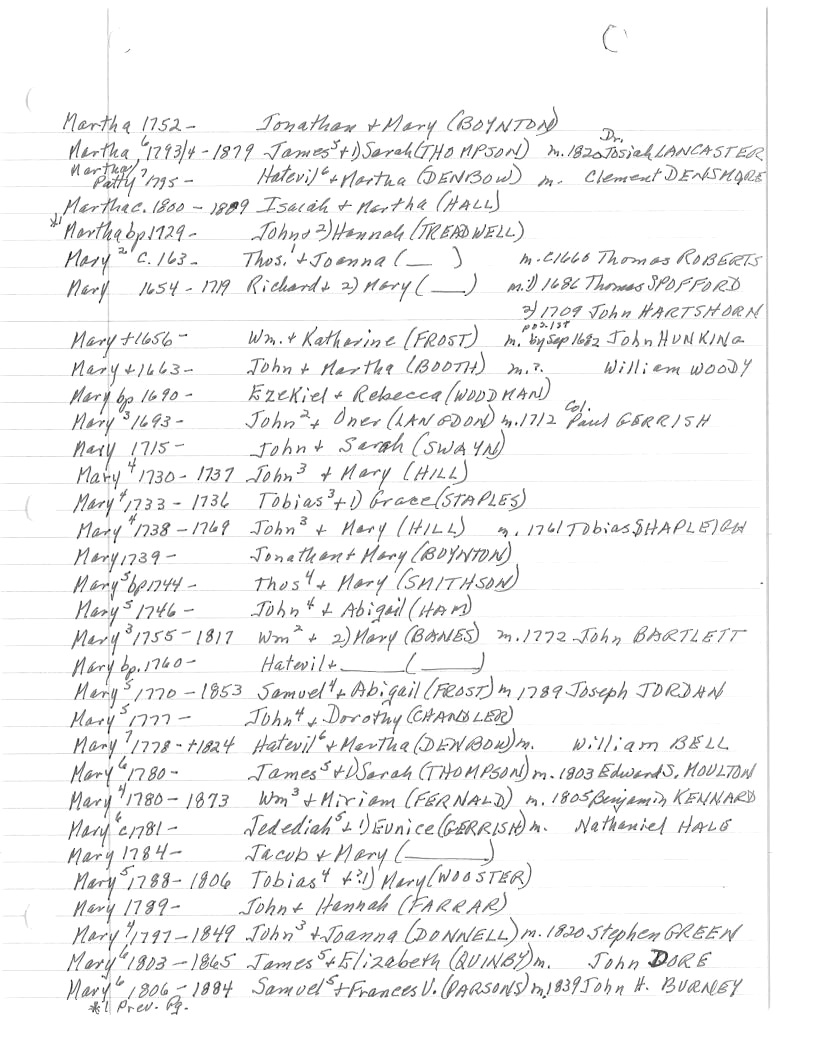 Martha 1752- Jonathan + Mary (BOYNTON)
Martha,⁶ 1793/4 - 1879 James⁵ + 1) Sarah (THOMPSON) m. 1820 Dr. Josiah LANCASTER
Martha/Patty⁷ 1795- Hatevil⁶ + Martha (DENBOW) m. Clement DENSMORE
Martha c. 1800 - 1889 Isaiah + Martha (HALL)
*1 Martha bp 1729- John + 2) Hannah (TREADWELL)
Mary² c. 163- Thos.¹ + Joanna (__) m. c1660 Thomas ROBERTS
Mary 1654 - 1719 Richard + 2) Mary (___) m. 1) 1686 Thomas SPOFFORD
2) 1709 John HARTSHORN
Mary +1656- Wm. + Katharine (FROST) m. poss. 1st by Sep 1682 John HUNKING
Mary +1663- John + Martha (BOOTH) m. ?. William WOODY
Mary bp 1690- Ezekiel + Rebecca (WOODMAN)
Mary³ 1693- John² + Oner (LANGDON) m. 1712 Col. Paul GERRISH
Mary 1715- John + Sarah (SWAYN)
Mary⁴ 1730 - 1737 John³ + Mary (HILL)
Mary⁴ 1733 - 1736 Tobias³ + 1) Grace (STAPLES)
Mary⁴ 1738 - 1769 John³ + Mary (HILL) m. 1761 Tobias SHAPLEIGH
Mary 1739- Jonathan + Mary (BOYNTON)
Mary⁵ bp 1744- Thos⁴ + Mary (SMITHSON)
Mary⁵ 1746- John⁴ + Abigail (HAM)
Mary³ 1755 - 1817 Wm² + 2) Mary (BANES) m. 1772 John BARTLETT
Mary bp. 1760- Hatevil + ______ (_____)
Mary⁵ 1770 - 1853 Samuel⁴ + Abigail (FROST) m 1789 Joseph JORDAN
Mary⁵ 1777- John⁴ + Dorothy (CHANDLER)
Mary⁷ 1778 - +1824 Hatevil⁶ + Martha (DENBOW) m. William BELL
Mary⁶ 1780- James⁵ + 1) Sarah (THOMPSON) m. 1803 Edward S. MOULTON
Mary⁴ 1780 - 1873 Wm³ + Miriam (FERNALD) m. 1805 Benjamin KENNARD
Mary⁶ c1781- Jedediah⁵ + 1) Eunice (GERRISH) m. Nathaniel HALE
Mary 1784- Jacob + Mary (_______)
Mary⁵ 1788 - 1806 Tobias⁴ + ?1) Mary (WOOSTER)
Mary 1789- John + Hannah (FARRAR)
Mary⁴ 1797 - 1849 John³ + Joanna (DONNELL) m. 1820 Stephen GREEN
Mary⁶ 1803 - 1865 James⁵ + Elizabeth (QUINBY) m. John DORE
Mary⁶ 1806 - 1884 Samuel⁵ + Frances V. (PARSONS) m. 1839 John H. BURNEY
*1 Prev. Pg.